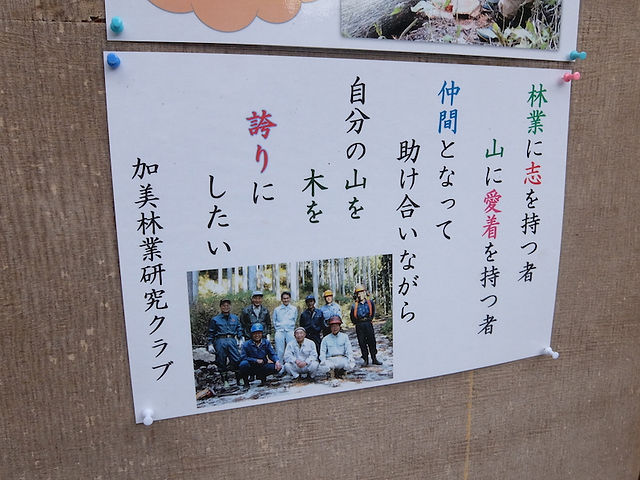 林業に志を持つ者
山に愛着を持つ者
仲間となって
助け合いながら
自分の山を
木を
誇りに
したい
加美林業研究クラブ